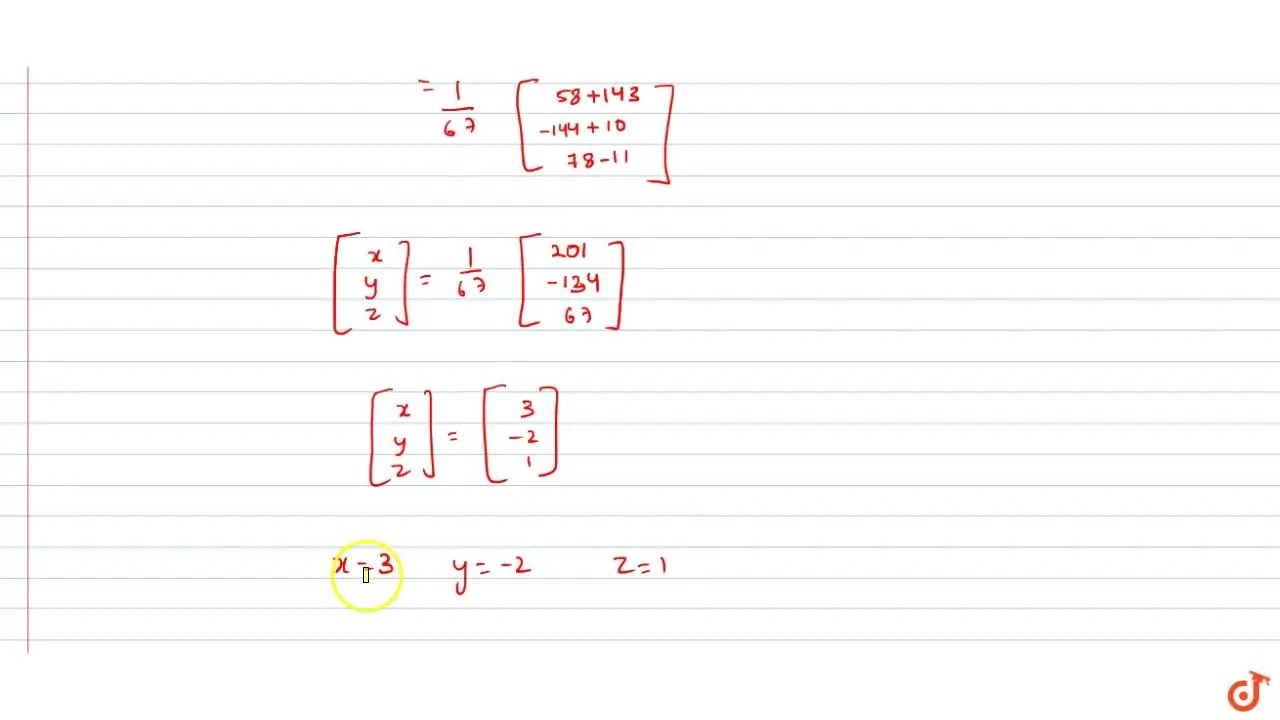 = 1/67 [ 58+143
-144+10
78-11 ]
[ x
y
z ] = 1/67 [ 201
-134
67 ]
[ x
y
z ] = [ 3
-2
1 ]
x = 3 y = -2 z = 1